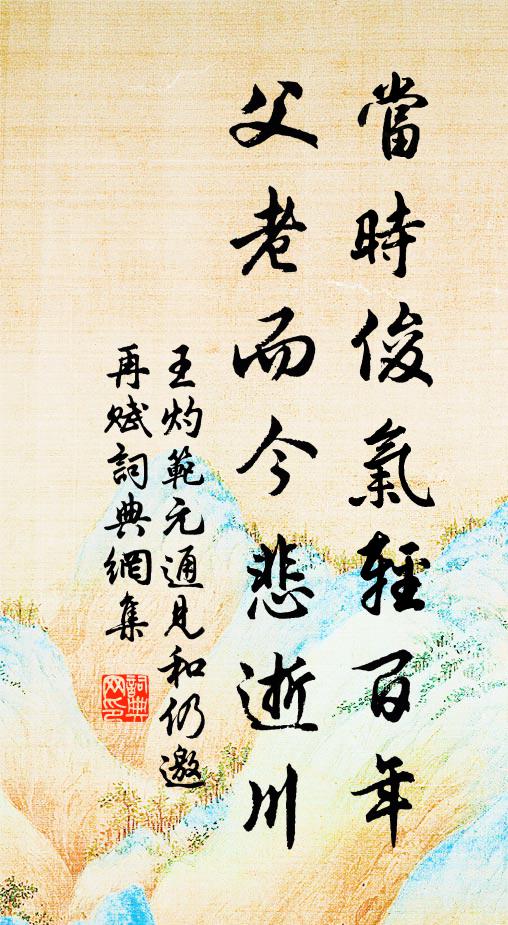 當時俊氣輕百年
父老而今悲逝川
王灼範元通見和仍邀
再賦詞典網集
詞典網印